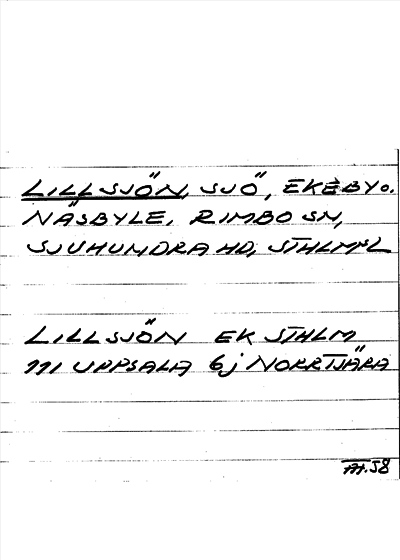 LILLSJÖN, SJÖ, EKEBY o.
NÄSBYLE, RIMBO SN,
SJUHUNDRA HD, STHLMS L
LILLSJÖN EK STHLM
111 UPPSALA 6j NORRTJÄRA